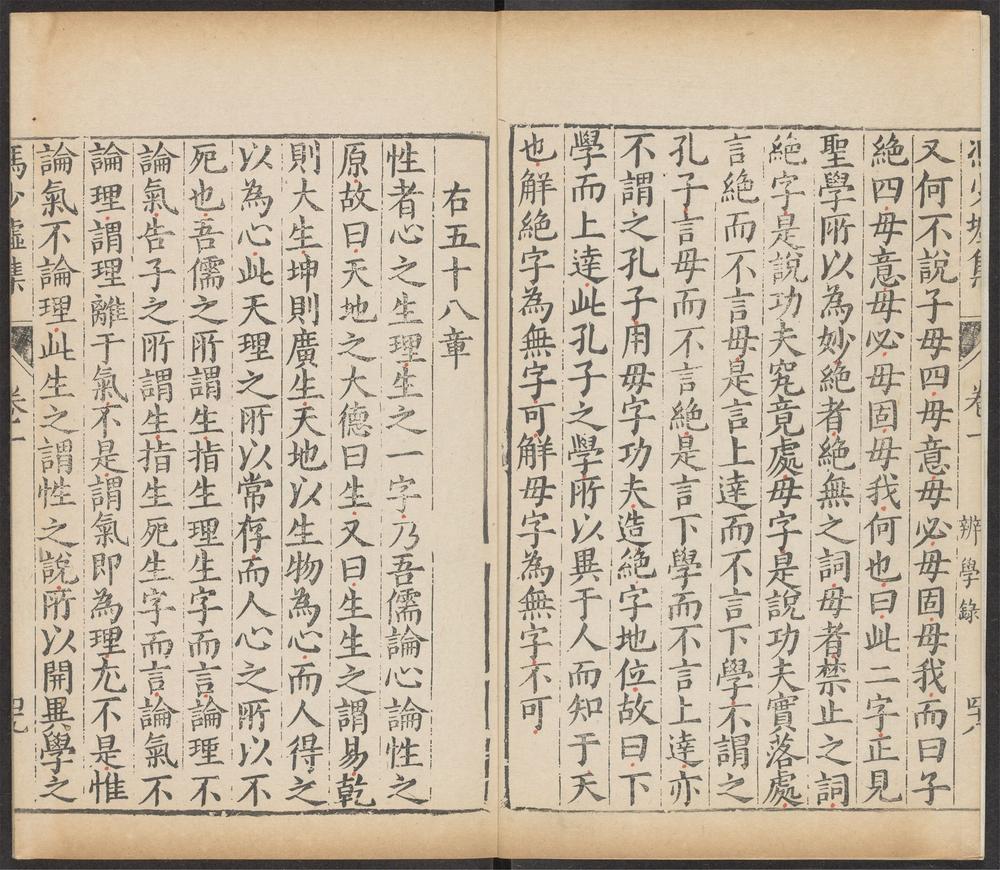 馮少墟集 卷一 辨學錄 四十八
又何不說子毋四毋意毋必毋固毋我而曰子
絕四毋意毋必毋固毋我何也曰此二字正見
聖學所以為妙絕者絕無之詞毋者禁止之詞
絕字是說功夫究竟處毋字是說功夫實落處
言絕而不言毋是言上達而不言下學不謂之
孔子言毋而不言絕是言下學而不言上達亦
不謂之孔子用毋字功夫造絕字地位故曰下
學而上達此孔子之學所以異于人而知于天
也解絕字為無字可解毋字為無字不可
右五十八章
性者心之生理生之一字乃吾儒論心論性之
原故曰天地之大德曰生又曰生生之謂易乾
則大生坤則廣生天地以生物為心而人得之
以為心此天理之所以常存而人心之所以不
死也吾儒之所謂生指生理生字而言論理不
論氣告子之所謂生指生死生字而言論氣不
論理謂理離于氣不是謂氣即為理尤不是惟
論氣不論理此生之謂性之說所以開異學之
馮少墟集 卷一 四十九